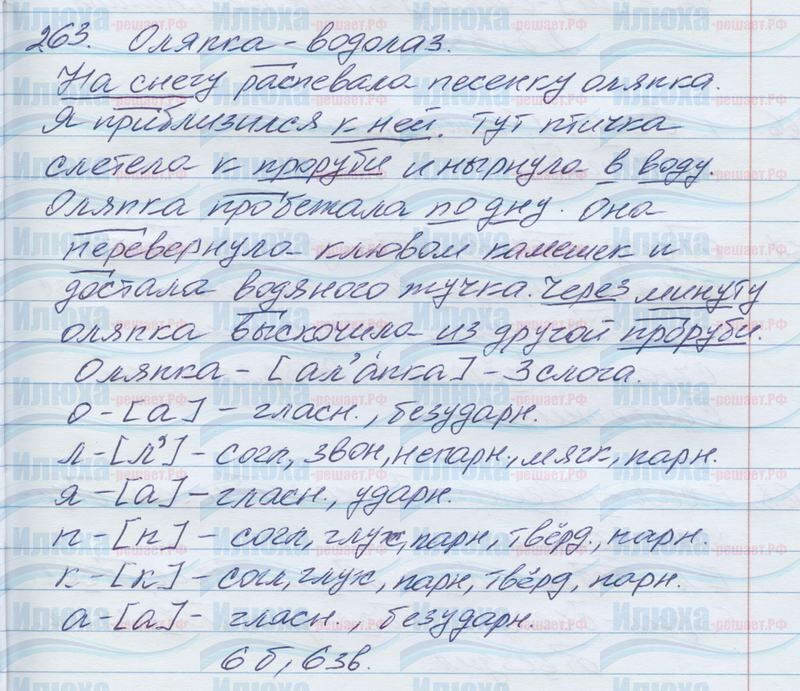 263. Оляпка - водолаз.
На снегу распевала песенку оляпка.
Я приблизился к ней. Тут птичка
слетела к проруби и нырнула в воду.
Оляпка пробежала по дну. Она
перевернула клювом камешек и
достала водяного жучка. Через минуту
оляпка выскочила из другой проруби.
Оляпка - [ал'а́пка] - 3 слога.
о - [а] - гласн., безударн.
л - [л'] - согл, звон, непарн., мягк, парн.
я - [а] - гласн., ударн.
п - [п] - согл, глух, парн, твёрд., парн.
к - [к] - согл, глух, парн, твёрд, парн.
а - [а] - гласн., безударн.
6 б, 6 зв.
Илюха-решает.РФ